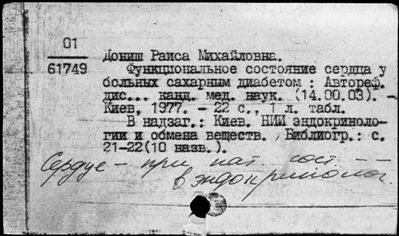 01
61749
Довиш Раиса Михайловна.
Функциональное состояние сердца у
больных сахарным диабетом : Автореф.
дис... канд. мед. наук. (14.00.03). -
Киев. 1977. - 22 с., 1 л. табл.
В надзаг.: Киев. НИИ эндокриноло-
гии и обмена веществ. Библиогр.: с.
21-22(10 назв.).
Сердце - при пат. сост. --
в эндокринолог.